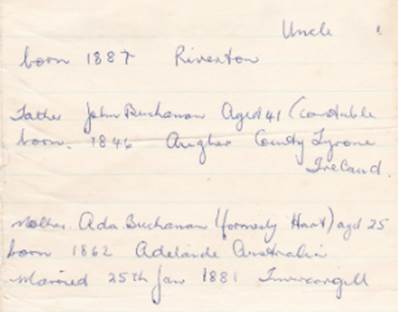 Uncle
born 1887 Riverton
Father John Buchanan Aged 41 (Constable
born. 1846 Augher County Tyrone
Ireland.
Mother. Ada Buchanan (formerly Hart) aged 25
born 1862 Adelaide Australia
Married 25th Jan 1881 Invercargill